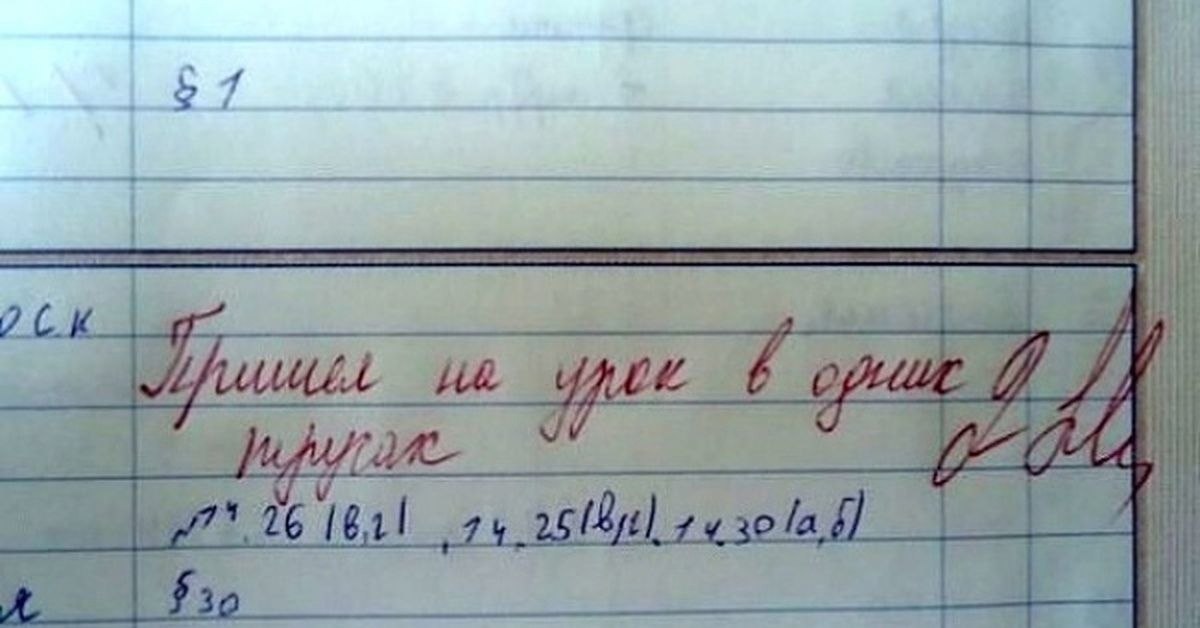 § 1
оск
Пришел на урок в одних 2
трусах
№14.26(в,г), 14.25(в,г), 14.30(а,б)
§30